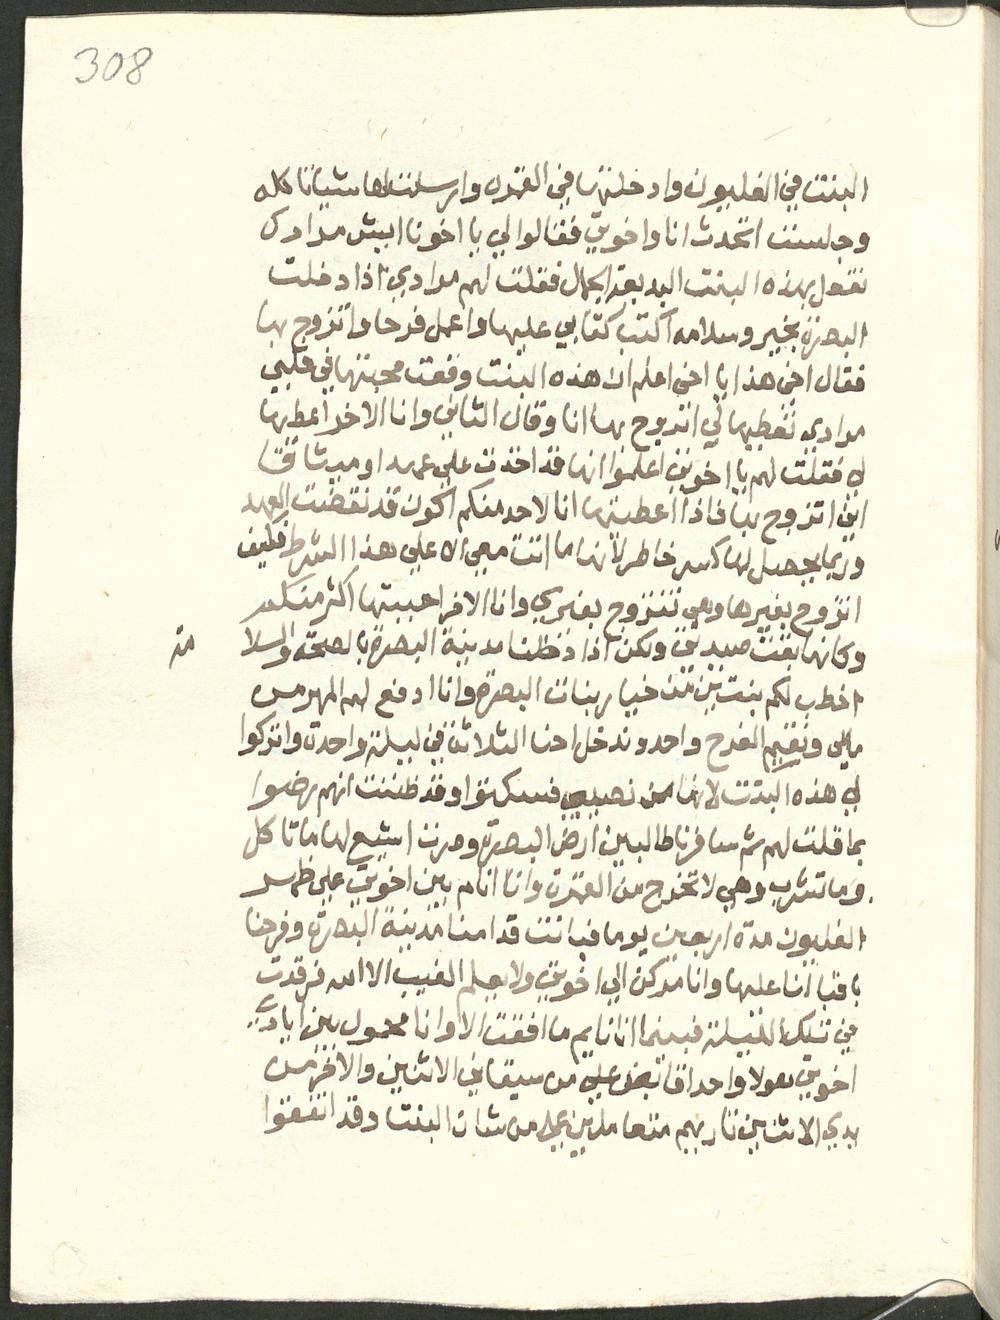 308
البنت في الغليون وادخلتها في القمره وارسلت لها شيا تاكله
وجلست اتحدث انا واخوتي فقالوا لي يا اخونا ايش مرادك
تفعل بهذه البنت البديعة الجمال فقلت لهم مرادي اذا دخلت
البصرة بخير وسلامه اكتب كتابي عليها واعمل فرحا واتزوج بها
فقال اخي هذا يا اخي اعلم ان هذه البنت وقعت محبتها في قلبي
مرادي تعطيها لي اتزوج بها انا وقال الثاني وانا الاخر اعطيها
لي فقلت لهم يا اخوتي اعلموا انها قد اخذت علي عهدا وميثاقا
اني اتزوج بها فاذا اعطيتها انا لاحد منكم اكون قد نقضت العهد
وربما يحصل لها كسر خاطر لانها ما اتت معي الا علي هذا الشرط فكيف
اتزوج بغيرها وهي تتزوج بغيري وانا الاخر احببتها اكثر منكم
وكانها بقت صيدتي ولكن اذا دخلنا مدينة البصرة بالصحة والسلا
مة
اخطب لكم بنتين من خيار بنات البصرة وانا ادفع لهم المهر من
مالي ونقيم الفرح واحد وندخل احنا الثلاثة في ليلة واحدة واتركوا
لي هذه البنت لانها من نصيبي فسكتوا وقد ظننت انهم رضوا
بما قلت لهم ثم سافرنا طالبين ارض البصرة وصرت اشيع لها ما تاكل
وما تشرب وهي لا تخرج من القمرة وانا انام بين اخوتي علي ظهر
الغليون مدة اربعين يوما فباتت قدامنا مدينة البصرة وفرحنا
باقبالنا عليها وانا مركن الي اخوتي ولا يعلم الغيب الا الله فرقدت
في تلك الليلة فبينما انا نايم ما افقت الا وانا محمول بين ايادي
اخوتي هولا واحد قابض علي من سيقاني الاثنين والاخر من
يدي الاثنين تاريهم متعاملين علي من شان البنت وقد اتفقوا